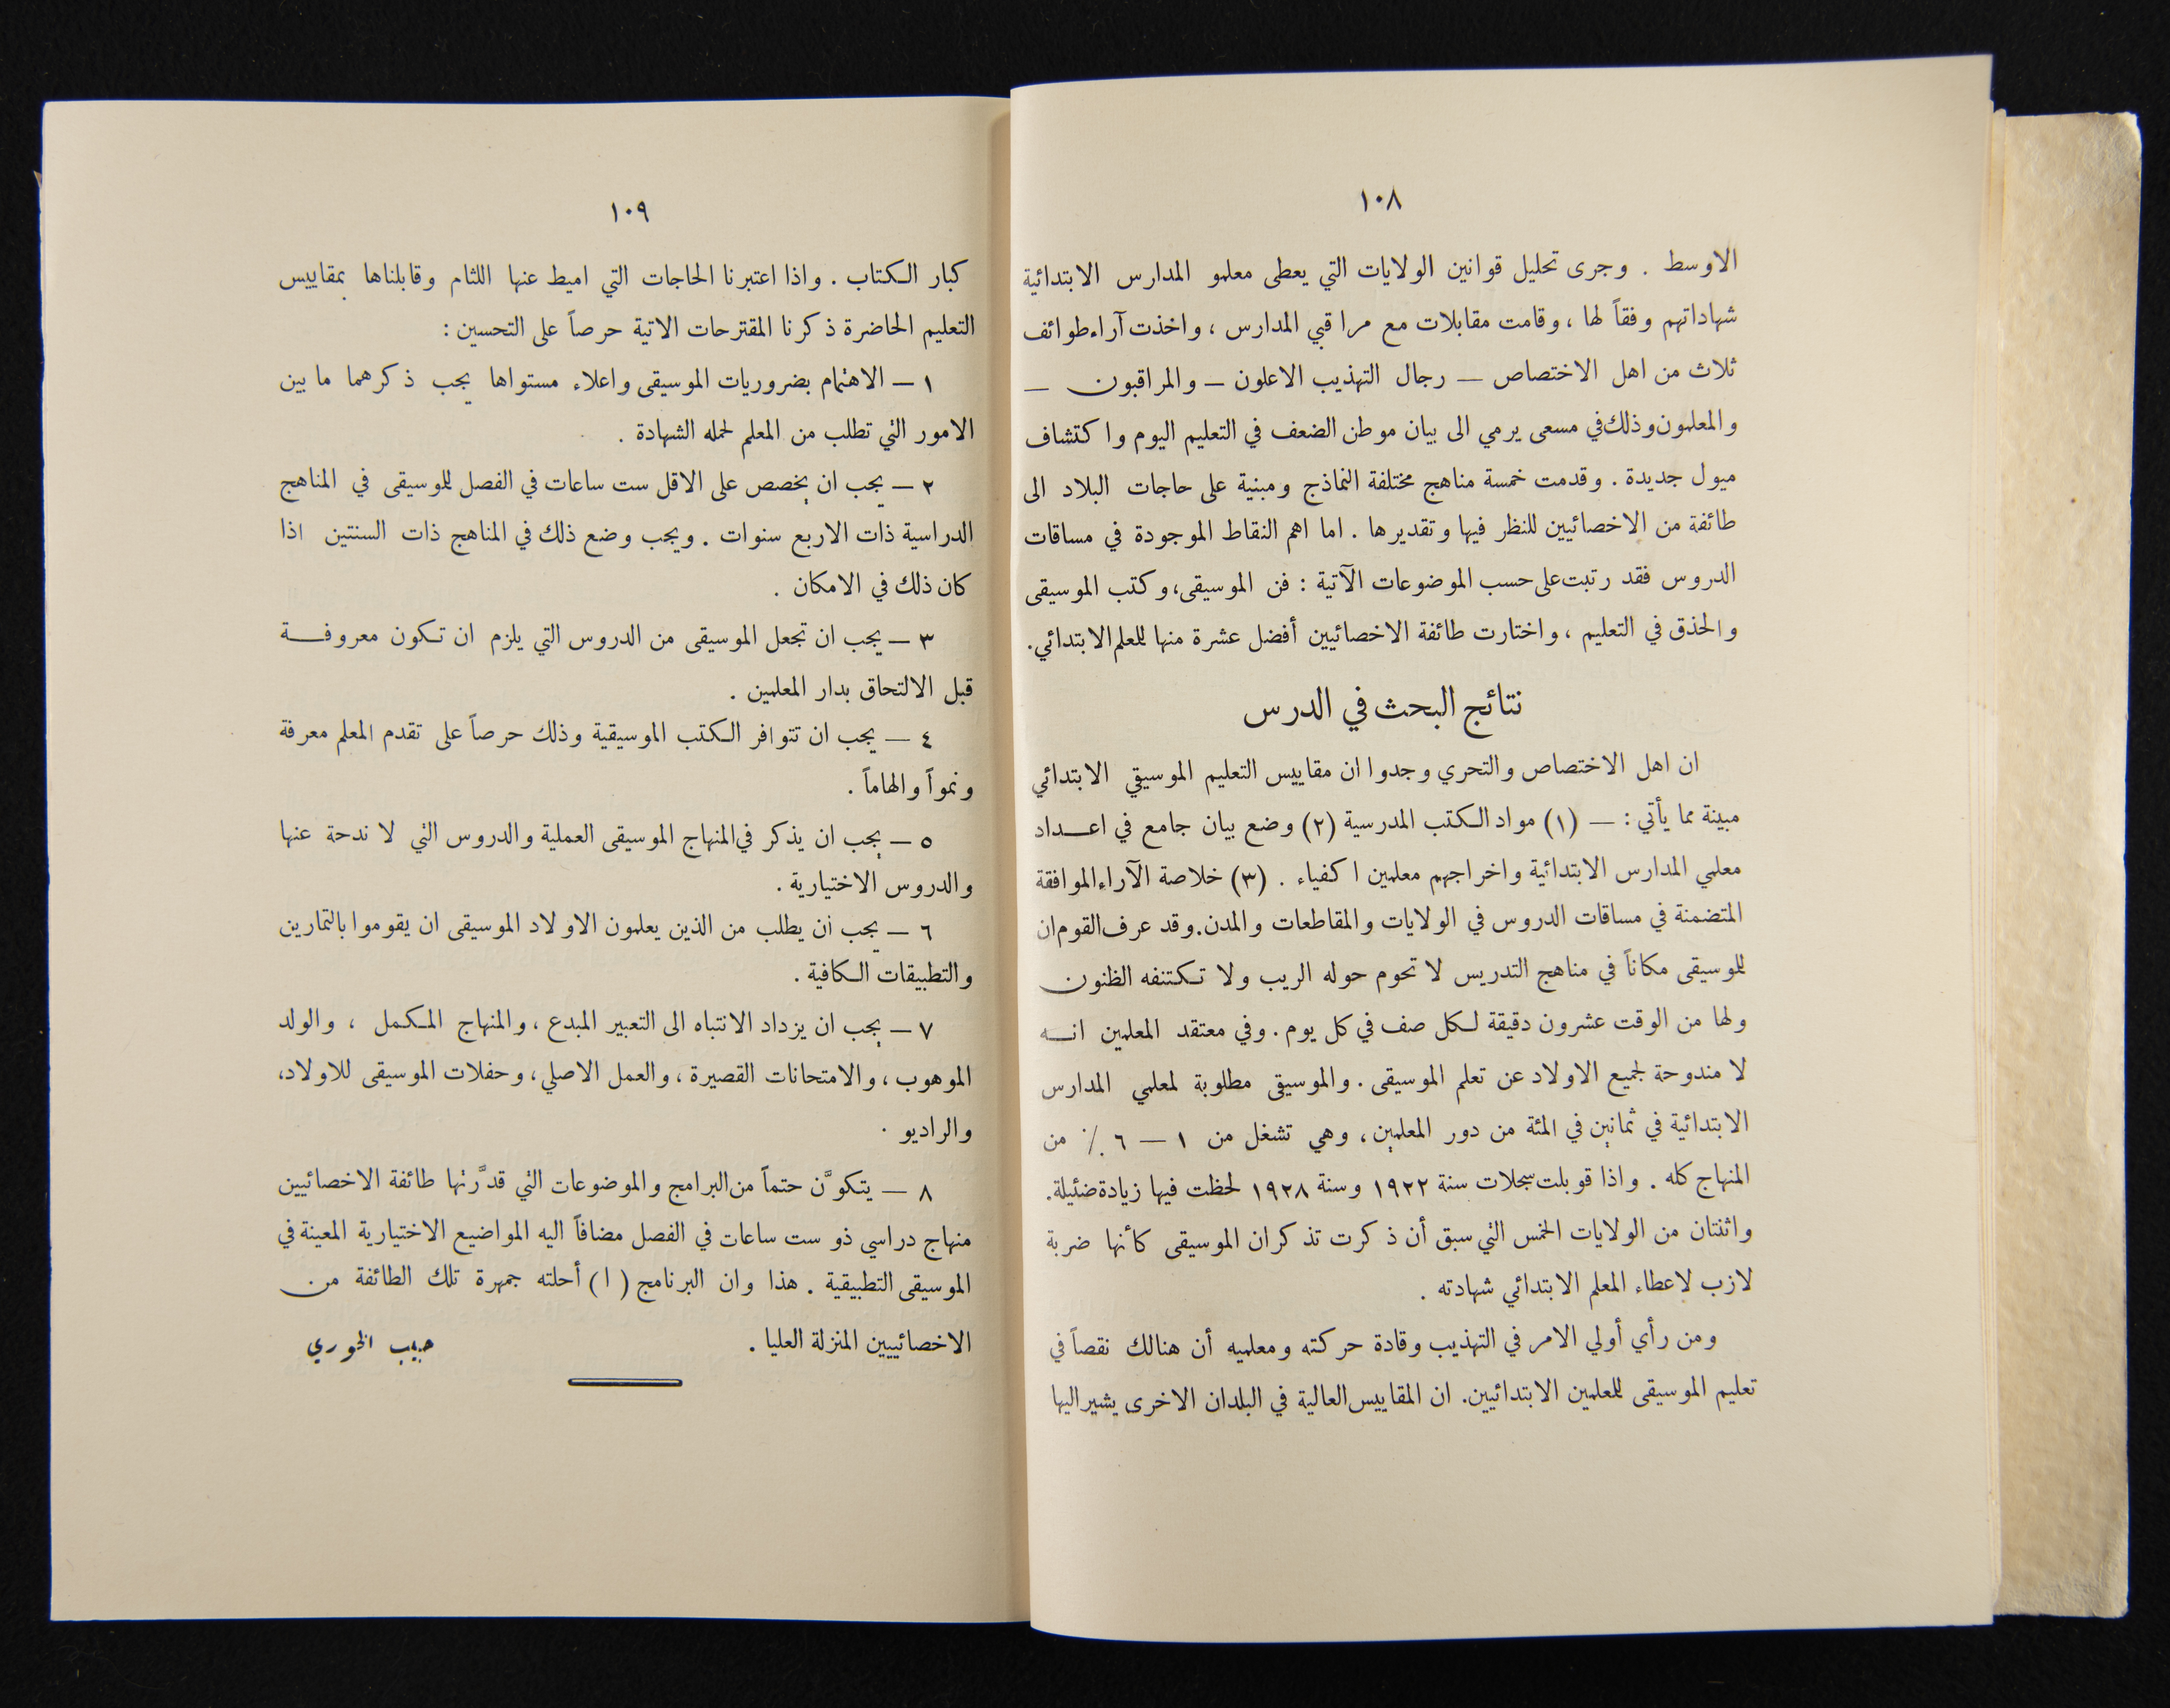 ١٠٨
الاوسط . وجرى تحليل قوانين الولايات التي يعطى معلمو المدارس الابتدائية
شهاداتهم وفقاً لها ، وقامت مقابلات مع مراقبي المدارس ، واخذت آراء طوائف
ثلاث من اهل الاختصاص — رجال التهذيب الاعلون — والمراقبون —
والمعلمون وذلك في مسعى يرمي الى بيان موطن الضعف في التعليم اليوم واكتشاف
ميول جديدة . وقدمت خمسة مناهج مختلفة النماذج ومبنية على حاجات البلاد الى
طائفة من الاخصائيين للنظر فيها وتقديرها . اما اهم النقاط الموجودة في مساقات
الدروس فقد رتبت على حسب الموضوعات الآتية : فن الموسيقى، وكتب الموسيقى
والحذق في التعليم ، واختارت طائفة الاخصائيين أفضل عشرة منها للمعلم الابتدائي.
نتائج البحث في الدرس
ان اهل الاختصاص والتحري وجدوا ان مقاييس التعليم الموسيقي الابتدائي
مبينة مما يأتي : — (١) مواد الكتب المدرسية (٢) وضع بيان جامع في اعداد
معلمي المدارس الابتدائية واخراجهم معلمين اكفياء . (٣) خلاصة الآراء الموافقة
المتضمنة في مساقات الدروس في الولايات والمقاطعات والمدن. وقد عرف القوم ان
للموسيقى مكاناً في مناهج التدريس لا تحوم حوله الريب ولا تكتنفه الظنون
ولها من الوقت عشرون دقيقة لكل صف في كل يوم . وفي معتقد المعلمين انه
لا مندوحة لجميع الاولاد عن تعلم الموسيقى . والموسيقى مطلوبة لمعلمي المدارس
الابتدائية في ثمانين في المئة من دور المعلمين ، وهي تشغل من ١ — ٦ ٪ من
المنهاج كله . واذا قوبلت سجلات سنة ١٩٢٢ وسنة ١٩٢٨ لحظت فيها زيادة ضئيلة.
واثنتان من الولايات الخمس التي سبق أن ذكرت تذكران الموسيقى كأنها ضربة
لازب لاعطاء المعلم الابتدائي شهادته .
ومن رأي أولي الامر في التهذيب وقادة حركته ومعلميه أن هنالك نقصاً في
تعليم الموسيقى للمعلمين الابتدائيين. ان المقاييس العالية في البلدان الاخرى يشير اليها
١٠٩
كبار الكتاب . واذا اعتبرنا الحاجات التي اميط عنها اللثام وقابلناها بمقاييس
التعليم الحاضرة ذكرنا المقترحات الاتية حرصاً على التحسين :
١ — الاهتمام بضروريات الموسيقى واعلاء مستواها يجب ذكرهما ما بين
الامور التي تطلب من المعلم لحمله الشهادة .
٢ — يجب ان يخصص على الاقل ست ساعات في الفصل للموسيقى في المناهج
الدراسية ذات الاربع سنوات . ويجب وضع ذلك في المناهج ذات السنتين اذا
كان ذلك في الامكان .
٣ — يجب ان تجعل الموسيقى من الدروس التي يلزم ان تكون معروفة
قبل الالتحاق بدار المعلمين .
٤ — يجب ان تتوافر الكتب الموسيقية وذلك حرصاً على تقدم المعلم معرفة
ونمواً والهاماً .
٥ — يجب ان يذكر في المنهاج الموسيقى العملية والدروس التي لا ندحة عنها
والدروس الاختيارية .
٦ — يجب أن يطلب من الذين يعلمون الاولاد الموسيقى ان يقوموا بالتمارين
والتطبيقات الكافية .
٧ — يجب ان يزداد الانتباه الى التعبير المبدع ، والمنهاج المكمل ، والولد
الموهوب ، والامتحانات القصيرة ، والعمل الاصلي ، وحفلات الموسيقى للاولاد،
والراديو .
٨ — يتكوَّن حتماً من البرامج والموضوعات التي قدَّرتها طائفة الاخصائيين
منهاج دراسي ذو ست ساعات في الفصل مضافاً اليه المواضيع الاختيارية المعينة في
الموسيقى التطبيقية . هذا وان البرنامج (ا) أحلته جمهرة تلك الطائفة من
الاخصائييين المنزلة العليا . حبيب الخوري